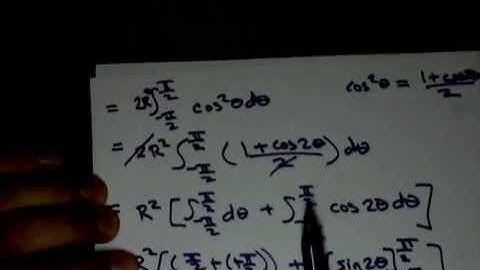 = 2R² ∫_{-π/2}^{π/2} cos²θ dθ cos²θ = 1+cos2θ/2
= 2R² ∫_{-π/2}^{π/2} (1+cos2θ/2) dθ
= R² [∫_{-π/2}^{π/2} dθ + ∫^{π/2} cos2θ dθ]
R² [(π/2 + (+π/2)) + [sin2θ]^{π/2}